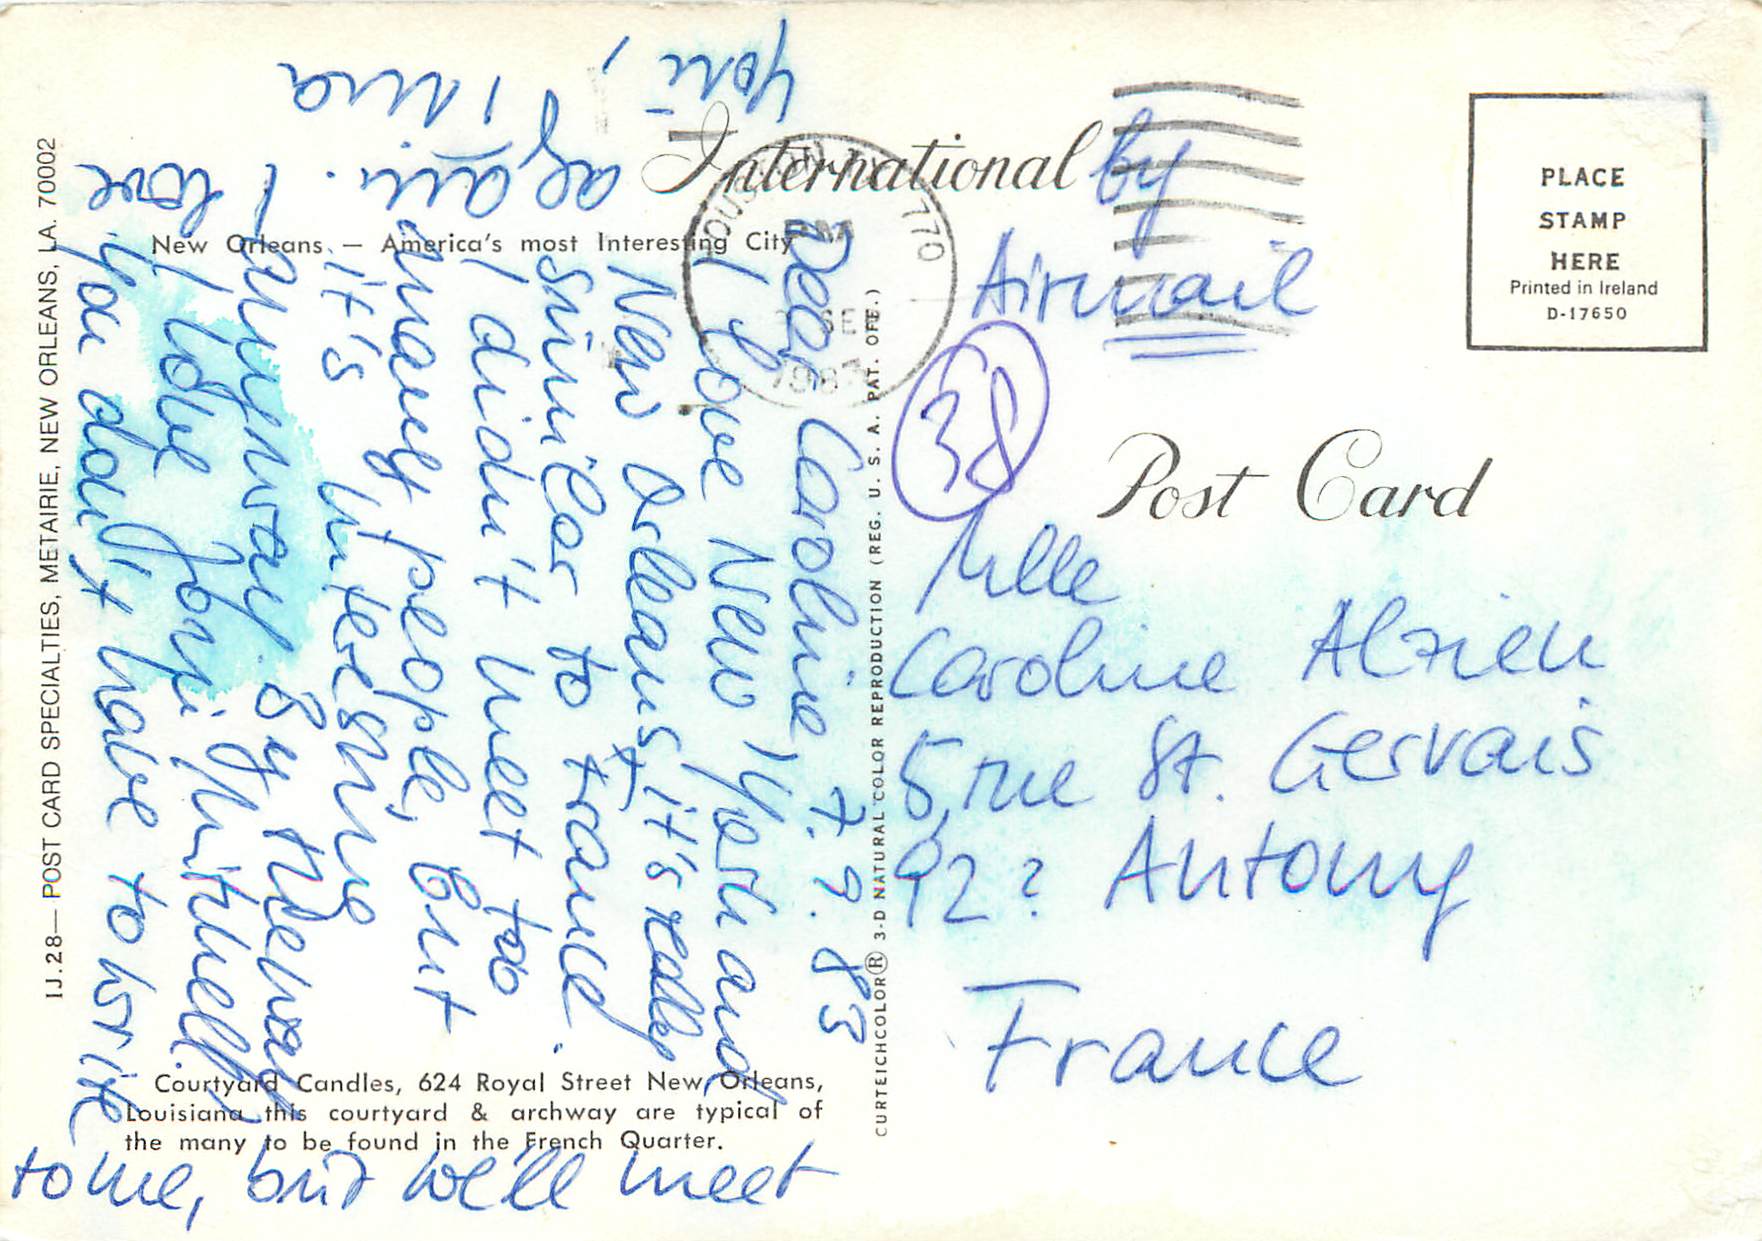 International
by
Airmail
PLACE
STAMP
HERE
Printed in Ireland
D-17650
HOUSTON 770
PM
SEP
1983
38
Post Card
Mlle
Caroline Alzieu
5, rue St. Gervais
92? Antony
France
New Orleans. — America's most Interesting City
Dear Caroline, 7.9.83
I love New York and
New Orleans, it's really
similar to France.
I didn't meet too
many people, but
it's interesting
anyway. By the way,
I love Joni Mitchell!
You don't have to write
to me, but we'll meet
again. I love
you, Tina
Courtyard Candles, 624 Royal Street New Orleans,
Louisiana this courtyard & archway are typical of
the many to be found in the French Quarter.
IJ.28— POST CARD SPECIALTIES, METAIRIE, NEW ORLEANS, LA. 70002
CURTEICHCOLOR® 3-D NATURAL COLOR REPRODUCTION (REG. U. S. A. PAT. OFF.)